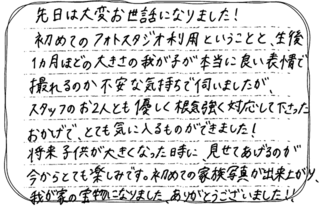 先日は大変お世話になりました！
初めてのフォトスタジオ利用ということと、生後
1カ月ほどの大きさの我が子が本当に良い表情で
撮れるのか不安な気持ちで伺いましたが、
スタッフのお2人とも優しく根気強く対応して下さった
おかげで、とても気に入るものができました！
将来子供が大きくなった時に見せてあげるのが
今からとても楽しみです。初めての家族写真が出来上がり、
我が家の宝物になりました。ありがとうございました！！